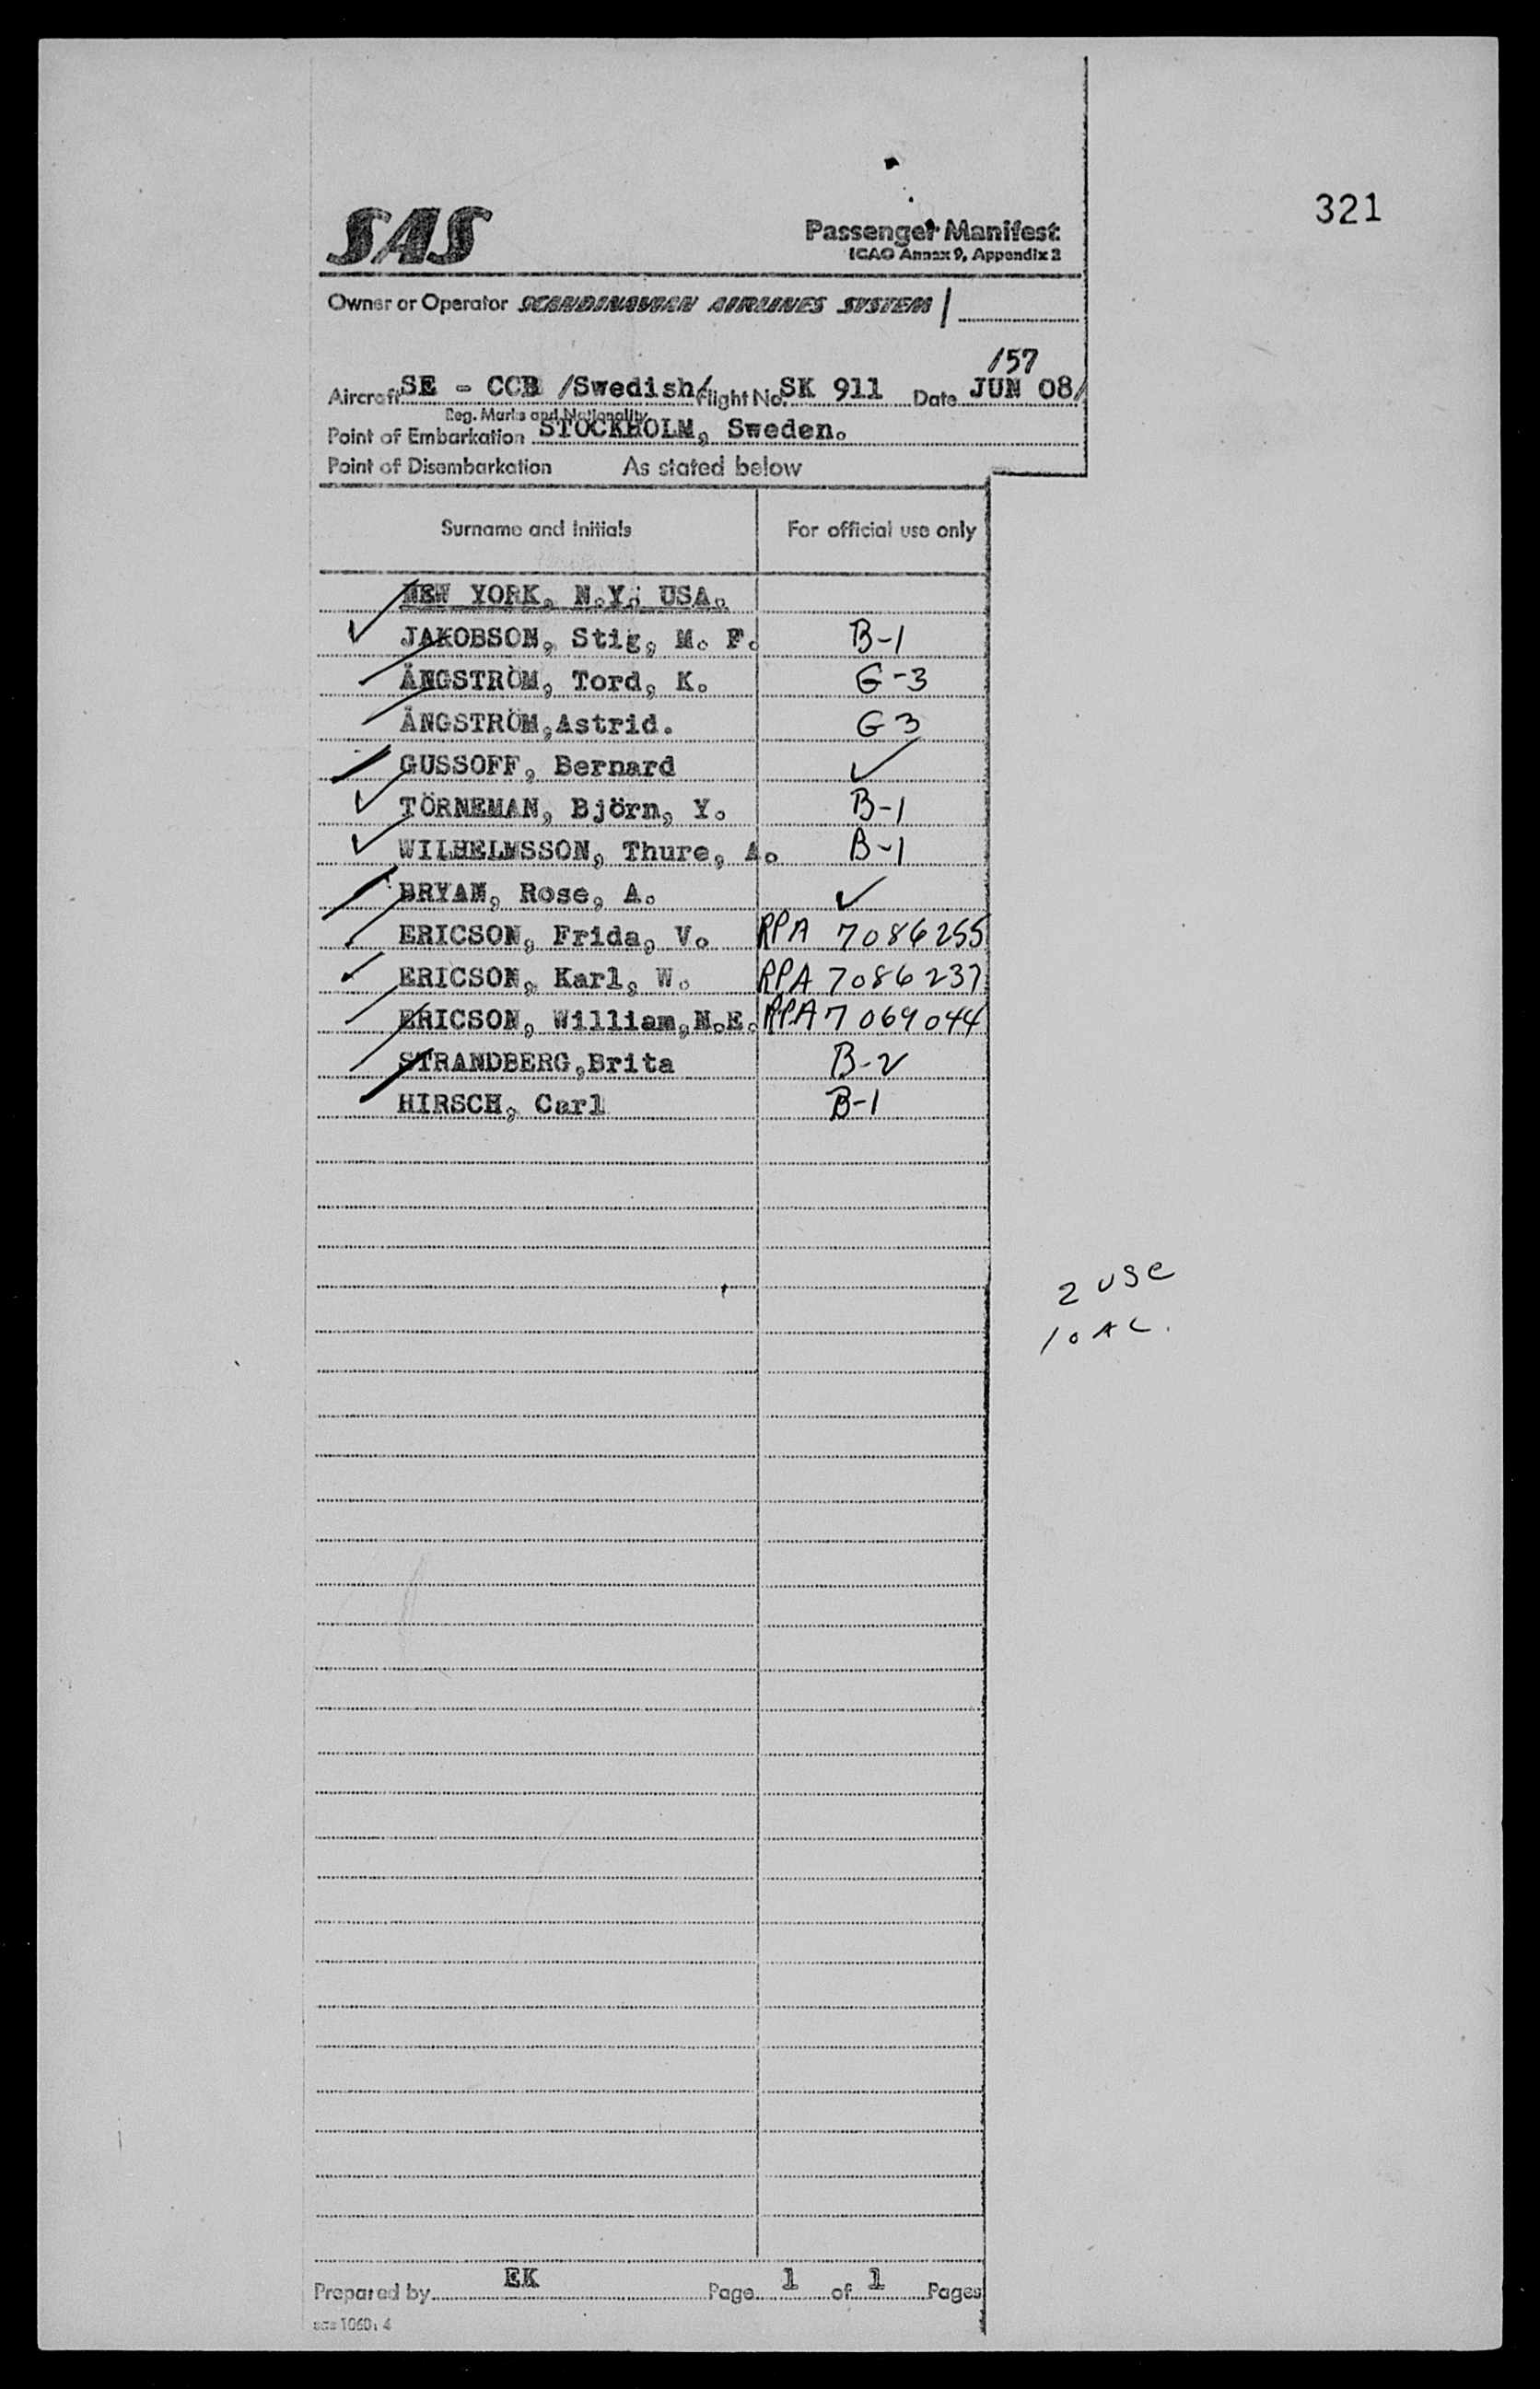 321
SAS
Passenger Manifest
ICAO Annex 9, Appendix 2
Owner or Operator SCANDINAVIAN AIRLINES SYSTEM
/57
Aircraft SE - CCB /Swedish/ Flight No. SK 911 Date JUN 08/
Reg. Marks and Nationality
Point of Embarkation STOCKHOLM, Sweden.
Point of Disembarkation As stated below
Surname and Initials For official use only
NEW YORK, N.Y. USA.
JAKOBSON, Stig, M. F. B-1
ÅNGSTRÖM, Tord, K. G-3
ÅNGSTRÖM, Astrid. G 3
GUSSOFF, Bernard ✓
TÖRNEMAN, Björn, Y. B-1
WILHELMSSON, Thure, A. B-1
BRYAN, Rose, A. ✓
ERICSON, Frida, V. RPA 7086255
ERICSON, Karl, W. RPA 7086237
ERICSON, William, N.E. RPA 7069044
STRANDBERG, Brita B-2
HIRSCH, Carl B-1
2 USC
10 AL.
Prepared by EK Page 1 of 1 Pages